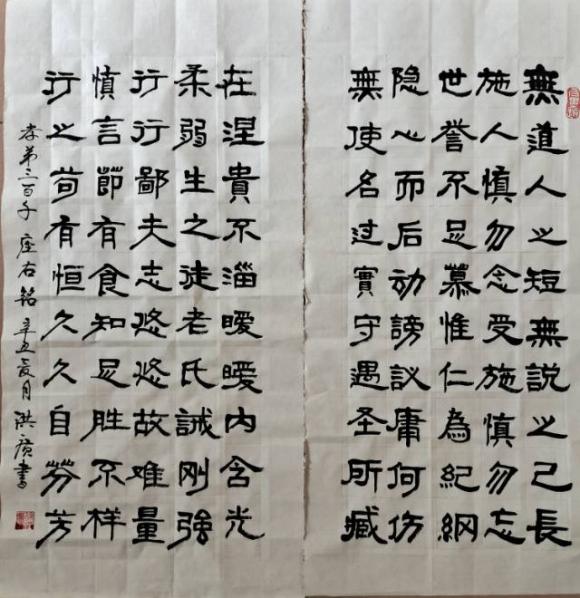 無道人之短無説之己長
施人慎勿念受施慎勿忘
世誉不足慕惟仁為紀綱
隐心而后动謗议庸何伤
無使名过實守遇圣所臧
在涅貴不淄曖曖内含光
柔弱生之徒老氏誡刚強
行行鄙夫志悠悠故难量
慎言節有食知足胜不样
行之苟有恒久久自芬芳
孝弟三百千 座右銘 辛丑夏月 洪廣書